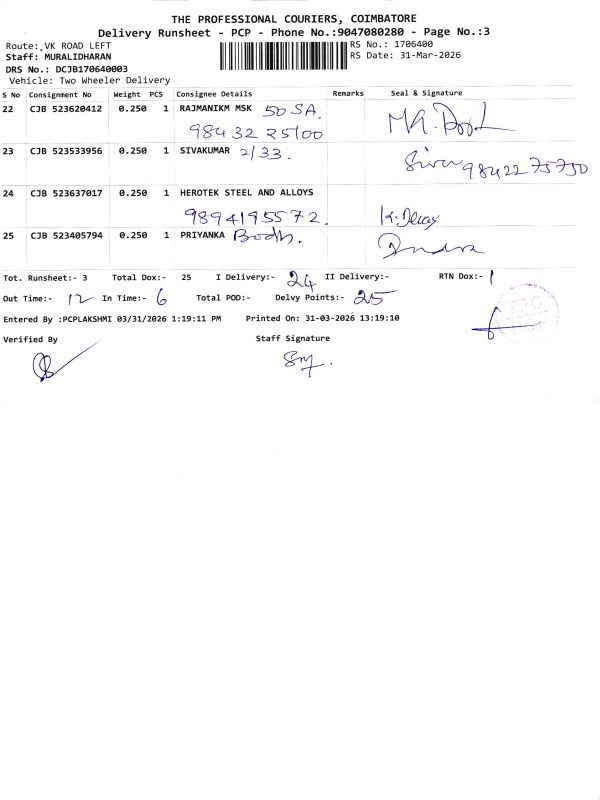 THE PROFESSIONAL COURIERS, COIMBATORE
Delivery Runsheet - PCP - Phone No.:9047080280 - Page No.:3
Route: VK ROAD LEFT RS No.: 1706400
Staff: MURALIDHARAN RS Date: 31-Mar-2026
DRS No.: DCJB170640003
Vehicle: Two Wheeler Delivery
S No Consignment No Weight PCS Consignee Details Remarks Seal & Signature
22 CJB 523620412 0.250 1 RAJMANIKM MSK 50 SA.
98432 25100
23 CJB 523533956 0.250 1 SIVAKUMAR 2/33. Siva 98422 75750
24 CJB 523637017 0.250 1 HEROTEK STEEL AND ALLOYS
9894195572. K. Devay
25 CJB 523405794 0.250 1 PRIYANKA
Tot. Runsheet:- 3 Total Dox:- 25 I Delivery:- 24 II Delivery:- RTN Dox:- 1
Out Time:- 12 In Time:- 6 Total POD:- Delvy Points:- 25
Entered By :PCPLAKSHMI 03/31/2026 1:19:11 PM Printed On: 31-03-2026 13:19:10
Verified By Staff Signature